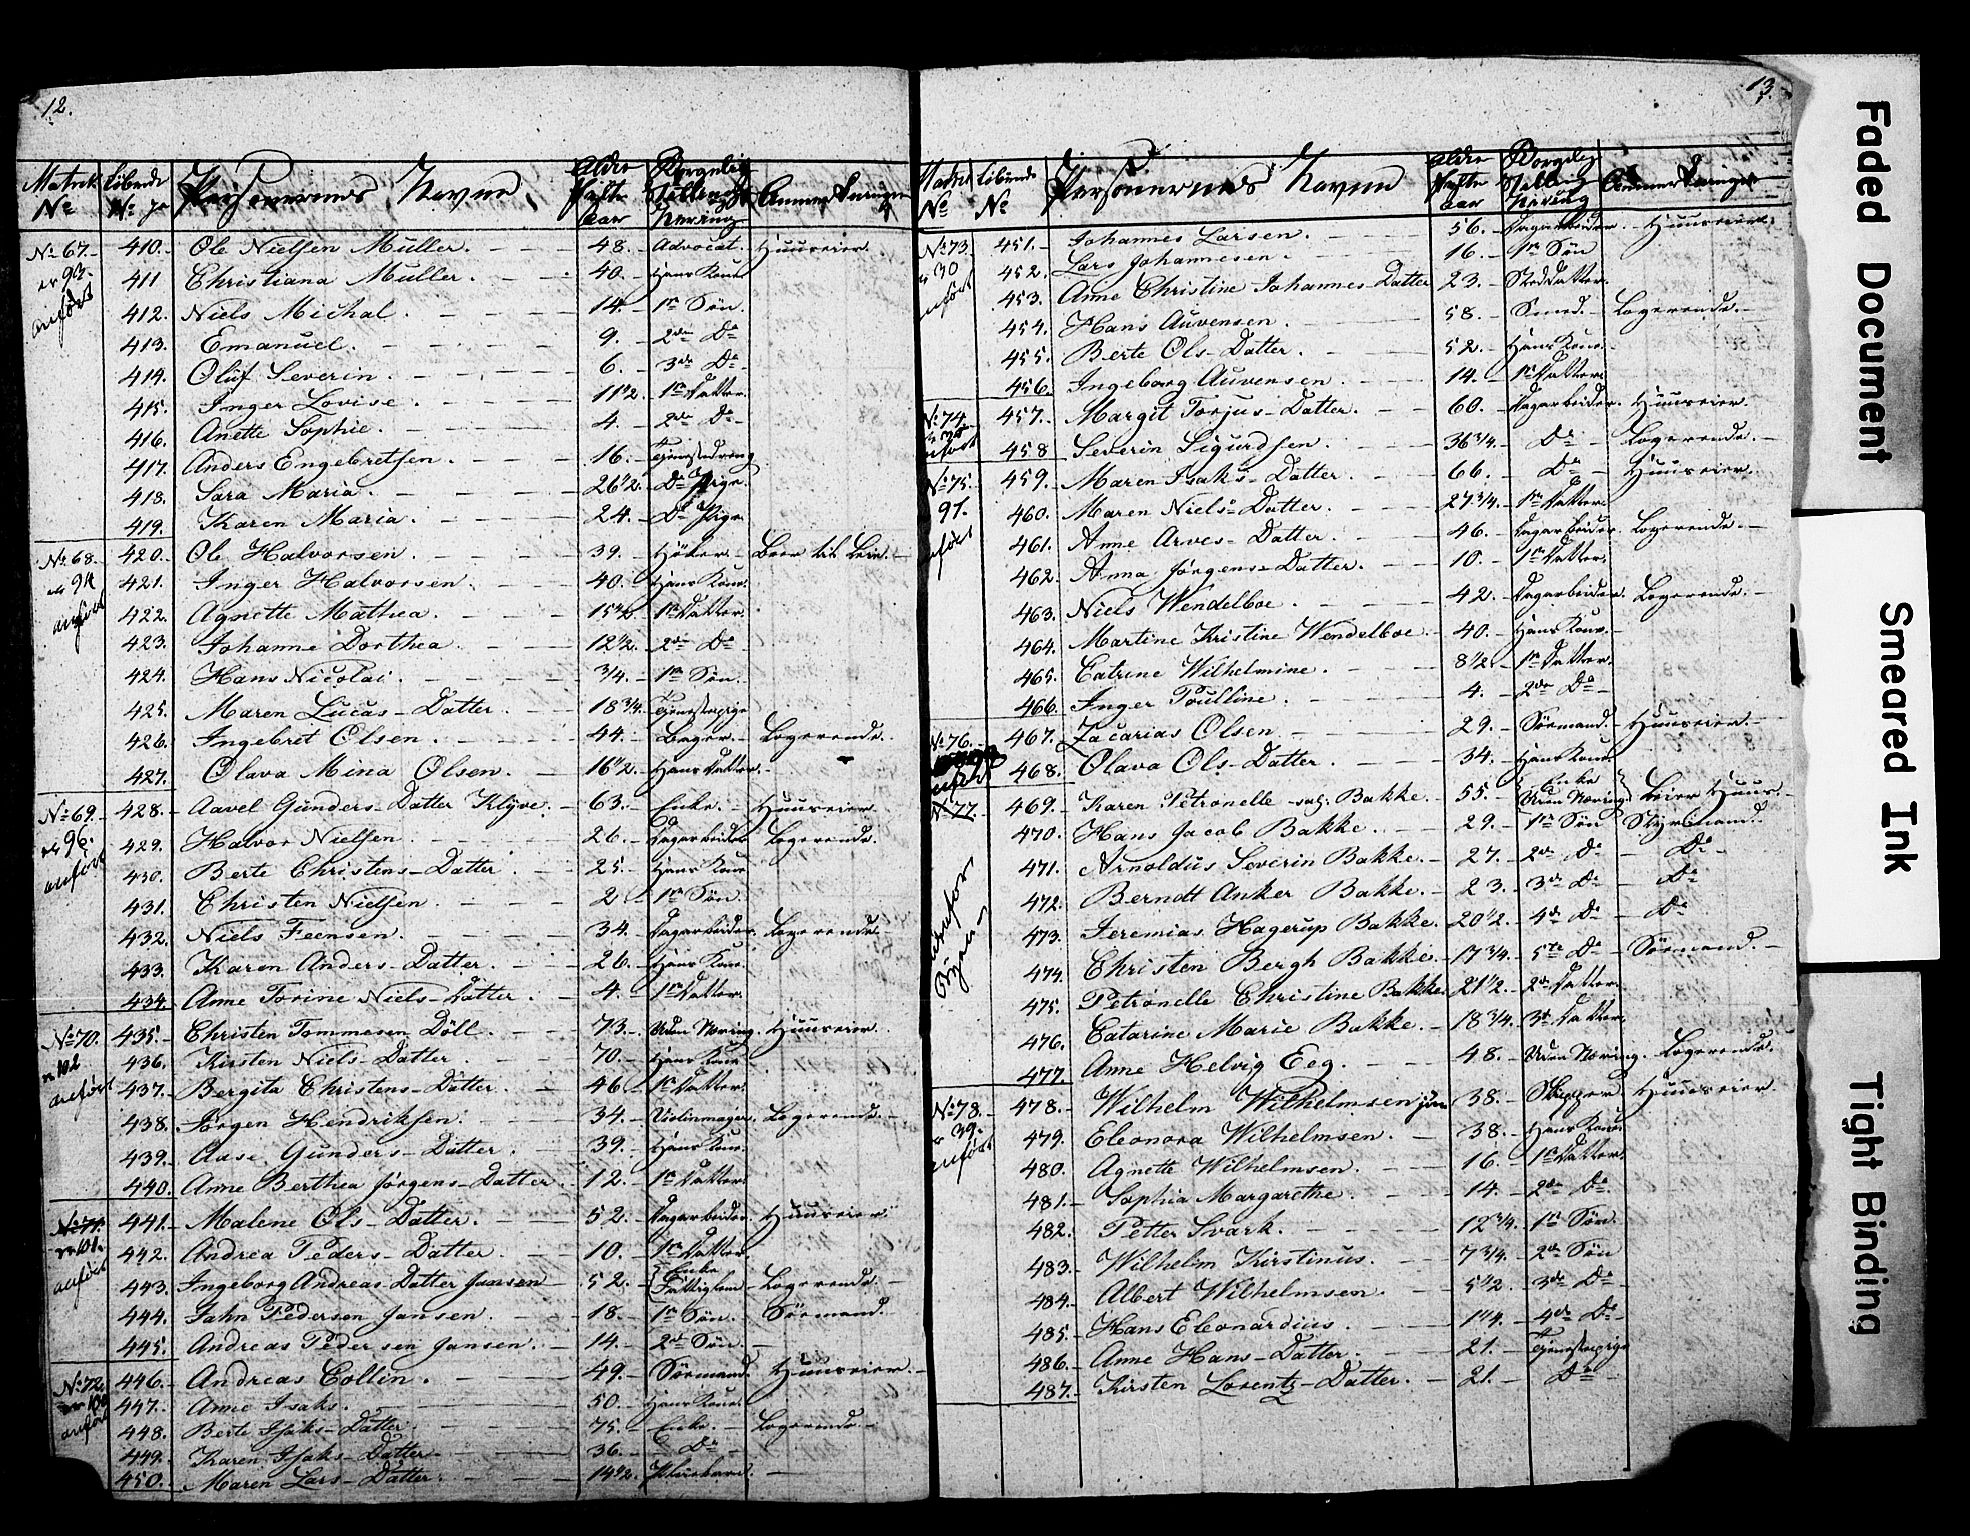 12.
Matrik No Löbende No Personernes Navne Alder Næste aar Borgelig Stilling Næring Anmærkninger
No 67. 410. Ole Nielsen Muller. 48. Advocat. Huuseier.
er 93. 411 Christiana Muller. 40. Hans Kone
anført 412. Niels Michal. 14. 1n Søn.
413. Emanuel. 9. 2den Do
414. Oluf Severin. 6. 3de Do
415. Inger Lovise. 11 1/2. 1n Datter.
416. Anette Sophie. 4. 2de Do
417. Anders Engebretsen. 16. Tjenestedreng
418. Sara Maria. 26 1/2. Do Pige.
419. Karen Maria. 24. Do Pige
No 68. 420. Ole Halvorsen. 39. Höker Boer til Leie.
er 94 421. Inger Halvorsen. 40. Hans Kone.
anført 422. Agnette Mathea. 15 1/2 1n Datter.
423. Johanne Dorthea. 12 1/2. 2de Do
424. Hans Nicolai. 3/4. 1n Søn.
425. Maren Lucas-Datter. 18 3/4. Tjenestepige
426. Ingebret Olsen. 44. Bager. Logerende.
427. Olava Mina Olsen. 16 1/2. Hans Datter.
No 69. 428. Aavel Gunders-Datter Klyve. 63. Enke. Huuseier
er 96. 429. Halvor Nielsen 26. Dagarbeider Logerende.
anført 430. Berte Christens-Datter. 25. Hans Kone
431. Christen Nielsen. 2 1n Søn.
432. Niels Feensen. 34. Dagarbeider. Logerende
433. Karen Anders-Datter. 26. Hans Kone.
434. Anne Torine Niels-Datter. 4. 1n Datter.
No 70. 435. Christen Tommesen Döll. 73. Uden Næring. Huuseier.
er 102 436. Kirsten Niels-Datter. 70. Hans Kone
anført 437. Bergita Christens-Datter. 46. 1n Datter.
438. Jørgen Hendriksen. 34. Violinmager. Logerende.
439. Aase Gunders-Datter. 39. Hans Kone.
440. Anne Berthea Jørgens-Datter. 12. 1n Datter.
No 71. 441. Malene Ols-Datter. 52. Dagarbeider. Huuseier
er 101. 442. Andrea Peders-Datter. 10. 1n Datter
anført 443. Ingeborg Andreas-Datter Jansen 52. Enke Fattiglem Logerende.
444. Jahn Pedersen Jansen. 18. 1n Søn. Sömand.
445. Andreas Pedersen Jansen. 14. 2de Søn.
No 72. 446. Andreas Collin. 49. Sömand. Huuseier.
447. Anne Isaks. 50. Hans Kone.
anført 448. Berte Isaks-Datter 75. Enke. Logerende.
449. Karen Isaks-Datter 36. Do
450. Maren Lars-Datter. 14 1/2.
13.
Matrik No Löbende No Personernes Navne Alder Næste aar Borgelig Stilling Næring Anmærkninger
No 73. 451. Johannes Larsen. 56. Dagarbeider. Huuseier.
er 30 452. Lars Johannesen. 16. 1n Søn
anført 453. Anne Christine Johannes-Datter 23. Steddatter.
454. Hans Auvensen. 58. Smed. Logerende.
455. Berte Ols-Datter. 52. Hans Kone.
456. Ingeborg Auvensen. 14. 1n Datter.
No 74 457. Margit Torjus-Datter. 60. Dagarbeider. Huuseier.
anført 458 Severin Sigurdsen. 36 3/4. Do Logerende.
No 75. 459. Maren Isaks-Datter. 66. Do Huuseier.
97. 460. Maren Niels-Datter. 27 3/4. 1n Datter
anført 461. Anne Arves-Datter. 46. Dagarbeider Logerende.
462. Anna Jørgens-Datter. 10. 1n Datter.
463. Niels Wendelboe. 42. Dagarbeider. Logerende.
464. Martine Kristine Wendelboe. 40. Hans Kone.
465. Catrine Wilhelmine. 8 1/2. 1n Datter.
466. Inger Poulline. 4. 2de Do
No 76. 467. Zacarias Olsen. 29. Sömand. Huuseier.
anført 468. Olava Ols-Datter. 34. Hans Kone
No 77. 469. Karen Petronelle sal: Bakke. 55. Enke Uden Næring Leier Huus.
470. Hans Jacob Bakke. 29. 1n Søn Styrmand.
471. Arnoldus Severin Bakke. 27. 2de Do Do
udenfor 472. Berndt Anker Bakke. 23. 3de Do Do
Byen 473. Jeremias Hagerup Bakke. 20 1/2. 4de Do Do
474. Christen Bergh Bakke. 17 3/4. 5te Do Sömand.
475. Petronelle Christine Bakke. 21 1/2. 2de Datter.
476. Catarine Marie Bakke. 18 3/4. 3de Datter.
477. Anne Helvig Eeg. 48. Uden Næring. Logerende.
No 78. 478. Wilhelm Wilhelmsen 38. Skipper Huuseier.
er 39. 479. Eleonora Wilhelmsen. 38. Hans Kone
anført 480. Agnette Wilhelmsen. 16. 1n Datter.
481. Sophia Margarethe. 14. 2de Do
482. Petter Svark. 12 3/4. 1n Søn.
483. Wilhelm Kirstinus. 7 3/4. 2de Søn
484. Albert Wilhelmsen. 5 1/2. 3de Do
485. Hans Eleonardius. 1 1/4. 4de Do
486. Anne Hans-Datter. 21. Tjenestepige
487. Kirsten Lorentz-Datter. 21. Do
Faded Document
Smeared Ink
Tight Binding